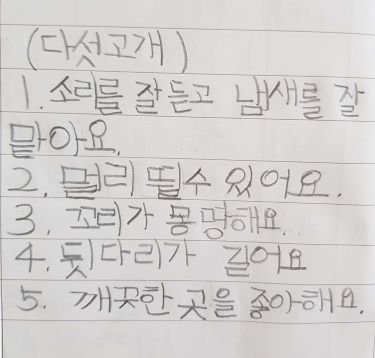 (다섯고개)
1. 소리를 잘 듣고 냄새를 잘
맡아요.
2. 멀리 뛸수 있어요.
3. 꼬리가 몽땅해요.
4. 뒷다리가 길어요
5. 깨끗한 곳을 좋아해요.